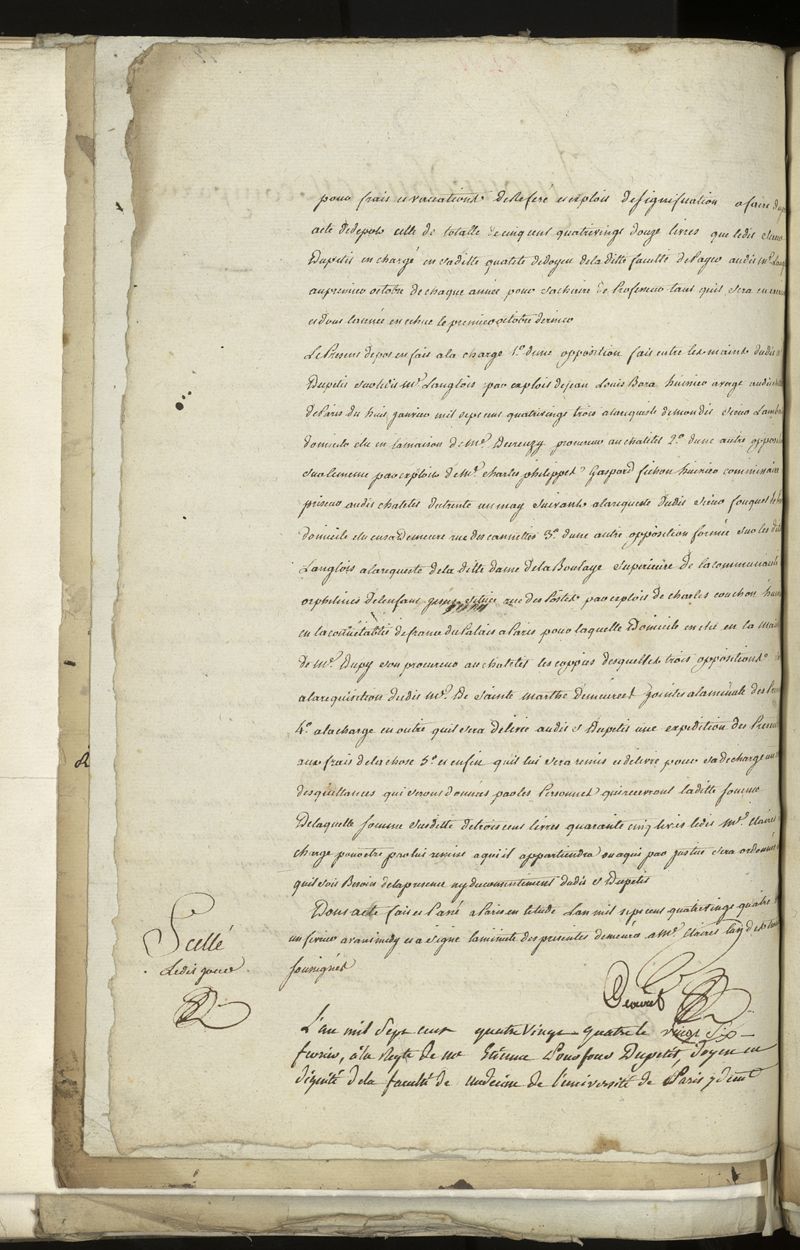 pour frais et vacations de Refere et exploit de signification a faire du
acte de depots celle de totalle de cinq cent quatrevingt douze livres que ledit Sieur
Dupetit en chargé en sadite qualité de doyen de la ditte faculté de Payer audit Mr Lang
au premier octobre de chaque année pour sa chaire de Professeur tant quil sera en
et dont lannée en echue le premier octobre dernier
Le Present depot en fait a la charge 1.º dune opposition fait entre les mains dudit S
Dupetit sur ledit Mr Langlois par exploit de jean Louis Bora huissier a verge au
de Paris du huit janvier mil sept cent quatrevingt trois a la requete de mondit sieur Lamb
domicile elu en la maison de Me Derrenzy procureur au chatelet 2.º dune autre oppos
sur le meme par exploit de Me charles philippes Gaspard fichon huissier commissaire
priseur audit chatelet du trente un may suivant a la requete dudit sieur fouquet
domicile elu en sa demeure rue des cannettes 3.º dune autre opposition formée sur les dit
Langlois a la requete de la ditte dame de la Boulaye Superieure de la communauté
orphelines de lenfant jesus rue des Postes par exploit de charles couchon huis
en la connétablie de france du Palais a Paris pour laquelle Domicile en elu en la mais
de Me Dupy son procureur au chatelet les coppies desquelles trois oppositions
a la requisition dudit Mr De Sainte marthe demeurées jointes a la minute des Pres
4.º a la charge en outre quil sera delivré audit S Dupetit une expedition des Presen
aux frais de la chose 5.º et enfin quil lui sera remis et delivré pour sa decharge
des quittances qui seront données par les Personnes qui recevront la ditte somme
De laquelle somme susditte de trois cent livres quarante cinq livres ledit Me Clairet
chargé pour etre par lui remise a qui il appartiendra ou a qui par justice sera ordonné
quil soit Besoin de la presence ny du consentement dudit S Dupetit
Dont acte fait et Passé a Paris en letude Lan mil sept cent quatrevingt quatre
un fevrier avant midy et a signé la minute des presentes demeurée a Me Clairet lun des
soussignés
Scellé
Ledit jour
L'an mil Sept cent quatre Vingt quatre le vingt Six
fevrier, à la reqte de mr Etienne Pourfour Dupetit, doyen en
dignité de la faculté de medecine de l'université de Paris y demt